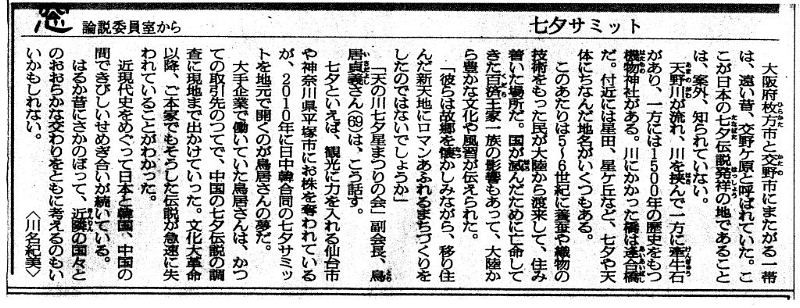 七夕サミット
窓 論説委員室から
大阪府枚方市と交野市にまたがる一帯
は、遠い昔、交野ケ原と呼ばれていた。こ
こが日本の七夕伝説発祥の地であること
は、案外、知られていない。
天野川が流れ、川を挟んで一方に牽牛石
があり、一方には1500年の歴史をもつ
機物神社がある。川にかかった橋は逢合橋
だ。付近には星田、星ケ丘など、七夕や天
体にちなんだ地名がいくつもある。
このあたりは5~6世紀に養蚕や織物の
技術をもった民が大陸から渡来して、住み
着いた場所だ。国が滅んだために亡命して
きた百済王家一族の影響もあって、大陸か
ら豊かな文化や風習が伝えられた。
「彼らは故郷を懐かしみながら、移り住
んだ新天地にロマンあふれるまちづくりを
したのではないでしょうか」
「天の川七夕星まつりの会」副会長、鳥
居貞義さん(69)は、こう話す。
七夕といえば、観光に力を入れる仙台市
や神奈川県平塚市にお株を奪われている
が、2010年に日中韓合同の七夕サミッ
トを地元で開くのが鳥居さんの夢だ。
大手企業で働いていた鳥居さんは、かつ
ての取引先のつてで、中国の七夕伝説の調
査に現地まで出かけていった。文化大革命
以降、ご本家でもそうした伝説が急速に失
われていることがわかった。
近現代史をめぐって日本と韓国、中国の
間できびしいせめぎ合いが続いている。
はるか昔にさかのぼって、近隣の国々と
のおおらかな交わりをともに考えるのもい
いかもしれない。 〈川名紀美〉